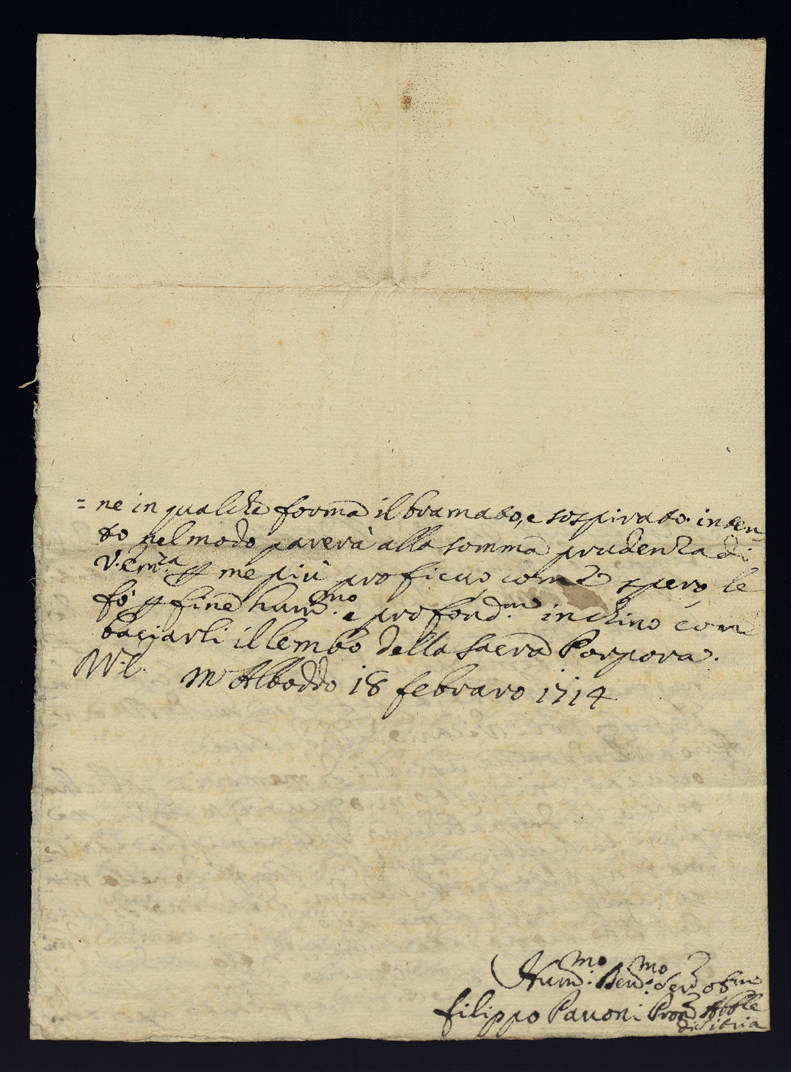 = ne in qualche forma il bramato, e sospirato inten-
to nel modo parerà alla somma prudenza di
V. Em.za p me più proficuo, come spero, le
fò p fine hum.mo e profond.mo inchino con
baciarli il lembo della sacra Porpora.
M.e Alboddo 18 febraro 1714
Hum.mo Dev.mo Ser.e obl.mo
filippo Pavoni